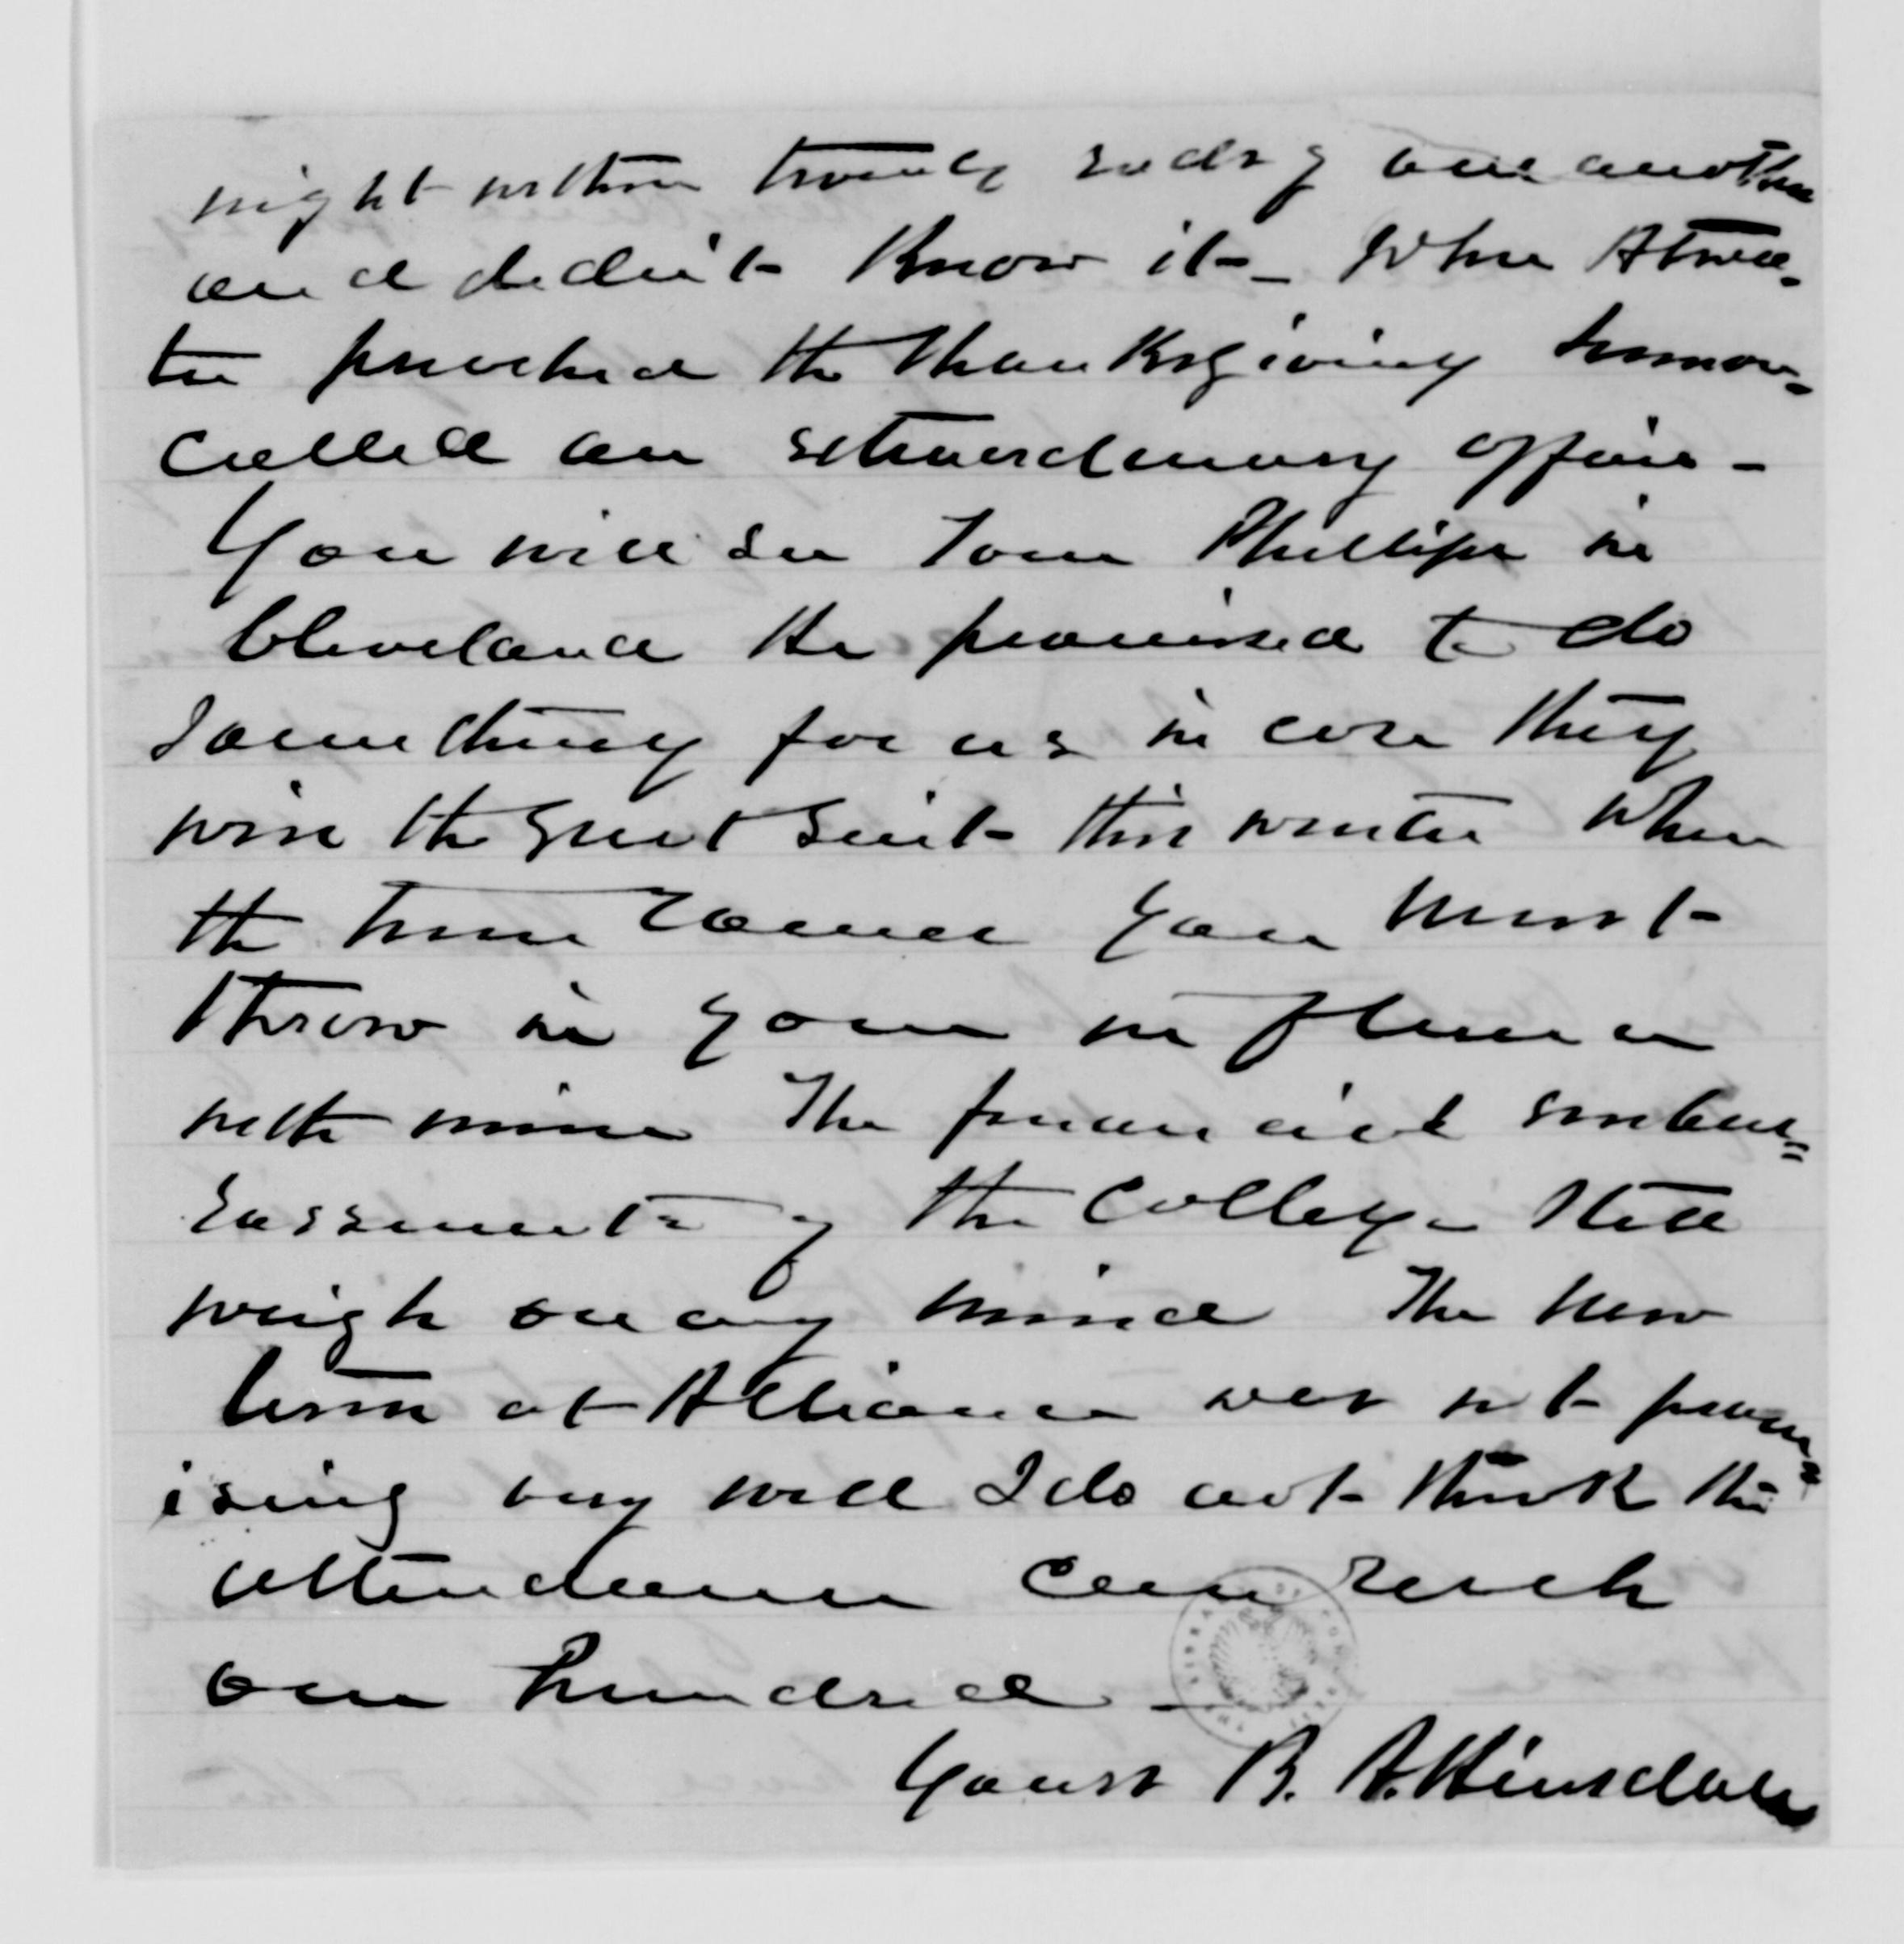 night within twenty rods of one another
and didn't know it - When Atwa-
ter preached the Thanksgiving sermon
called an extraordinary affair -
You will see Tom Phillips in
Cleveland He promised to do
something for us in case they
win the great suit this winter When
the time comes you must
throw in your influence
with mine The financial embar=
rassments of the College still
weigh on my mind The new
term at Alliance was not prom=
ising very well I do not think the
attendance can reach
one hundred -
Yours B. A. Hinsdale